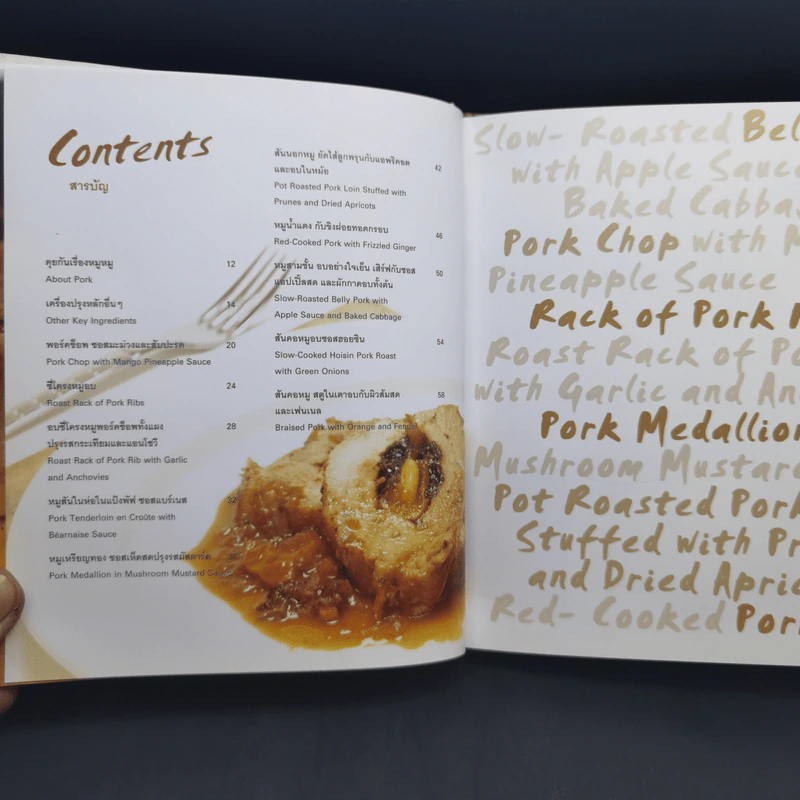 Contents
สารบัญ
คุยกันเรื่องหมูหมู 12
About Pork
เครื่องปรุงหลักอื่นๆ 14
Other Key Ingredients
พอร์คช็อพ ซอสมะม่วงและสับปะรด 20
Pork Chop with Mango Pineapple Sauce
ซี่โครงหมูอบ 24
Roast Rack of Pork Ribs
อบซี่โครงหมูพอร์คช็อพทั้งแผง 28
ปรุงรสกระเทียมและแอนโชวี
Roast Rack of Pork Rib with Garlic
and Anchovies
หมูสันในห่อในแป้งพัฟ ซอสแบร์เนส 32
Pork Tenderloin en Croûte with
Béarnaise Sauce
หมูเหรียญทอง ซอสเห็ดสดปรุงรสมัสตาร์ด
Pork Medallion in Mushroom Mustard Sauce
สันนอกหมู ยัดไส้ลูกพรุนกับแอพริคอต 42
และอบในหม้อ
Pot Roasted Pork Loin Stuffed with
Prunes and Dried Apricots
หมูน้ำแดง กับขิงฝอยทอดกรอบ 46
Red-Cooked Pork with Frizzled Ginger
หมูสามชั้น อบอย่างใจเย็น เสิร์ฟกับซอส 50
แอปเปิ้ลสด และผักกาดอบทั้งต้น
Slow-Roasted Belly Pork with
Apple Sauce and Baked Cabbage
สันคอหมูอบซอสฮอยซิน 54
Slow-Cooked Hoisin Pork Roast
with Green Onions
สันคอหมู สตูในเตาอบกับผิวส้มสด 58
และเฟนเนล
Braised Pork with Orange and Fennel
Slow- Roasted Bel
with Apple Sauc
Baked Cabba
Pork Chop with M
Pineapple Sauce
Rack of Pork
Roast Rack of Po
with Garlic and An
Pork Medallion
Mushroom Mustar
Pot Roasted Pork
Stuffed with Pr
and Dried Apric
Red- Cooked Por